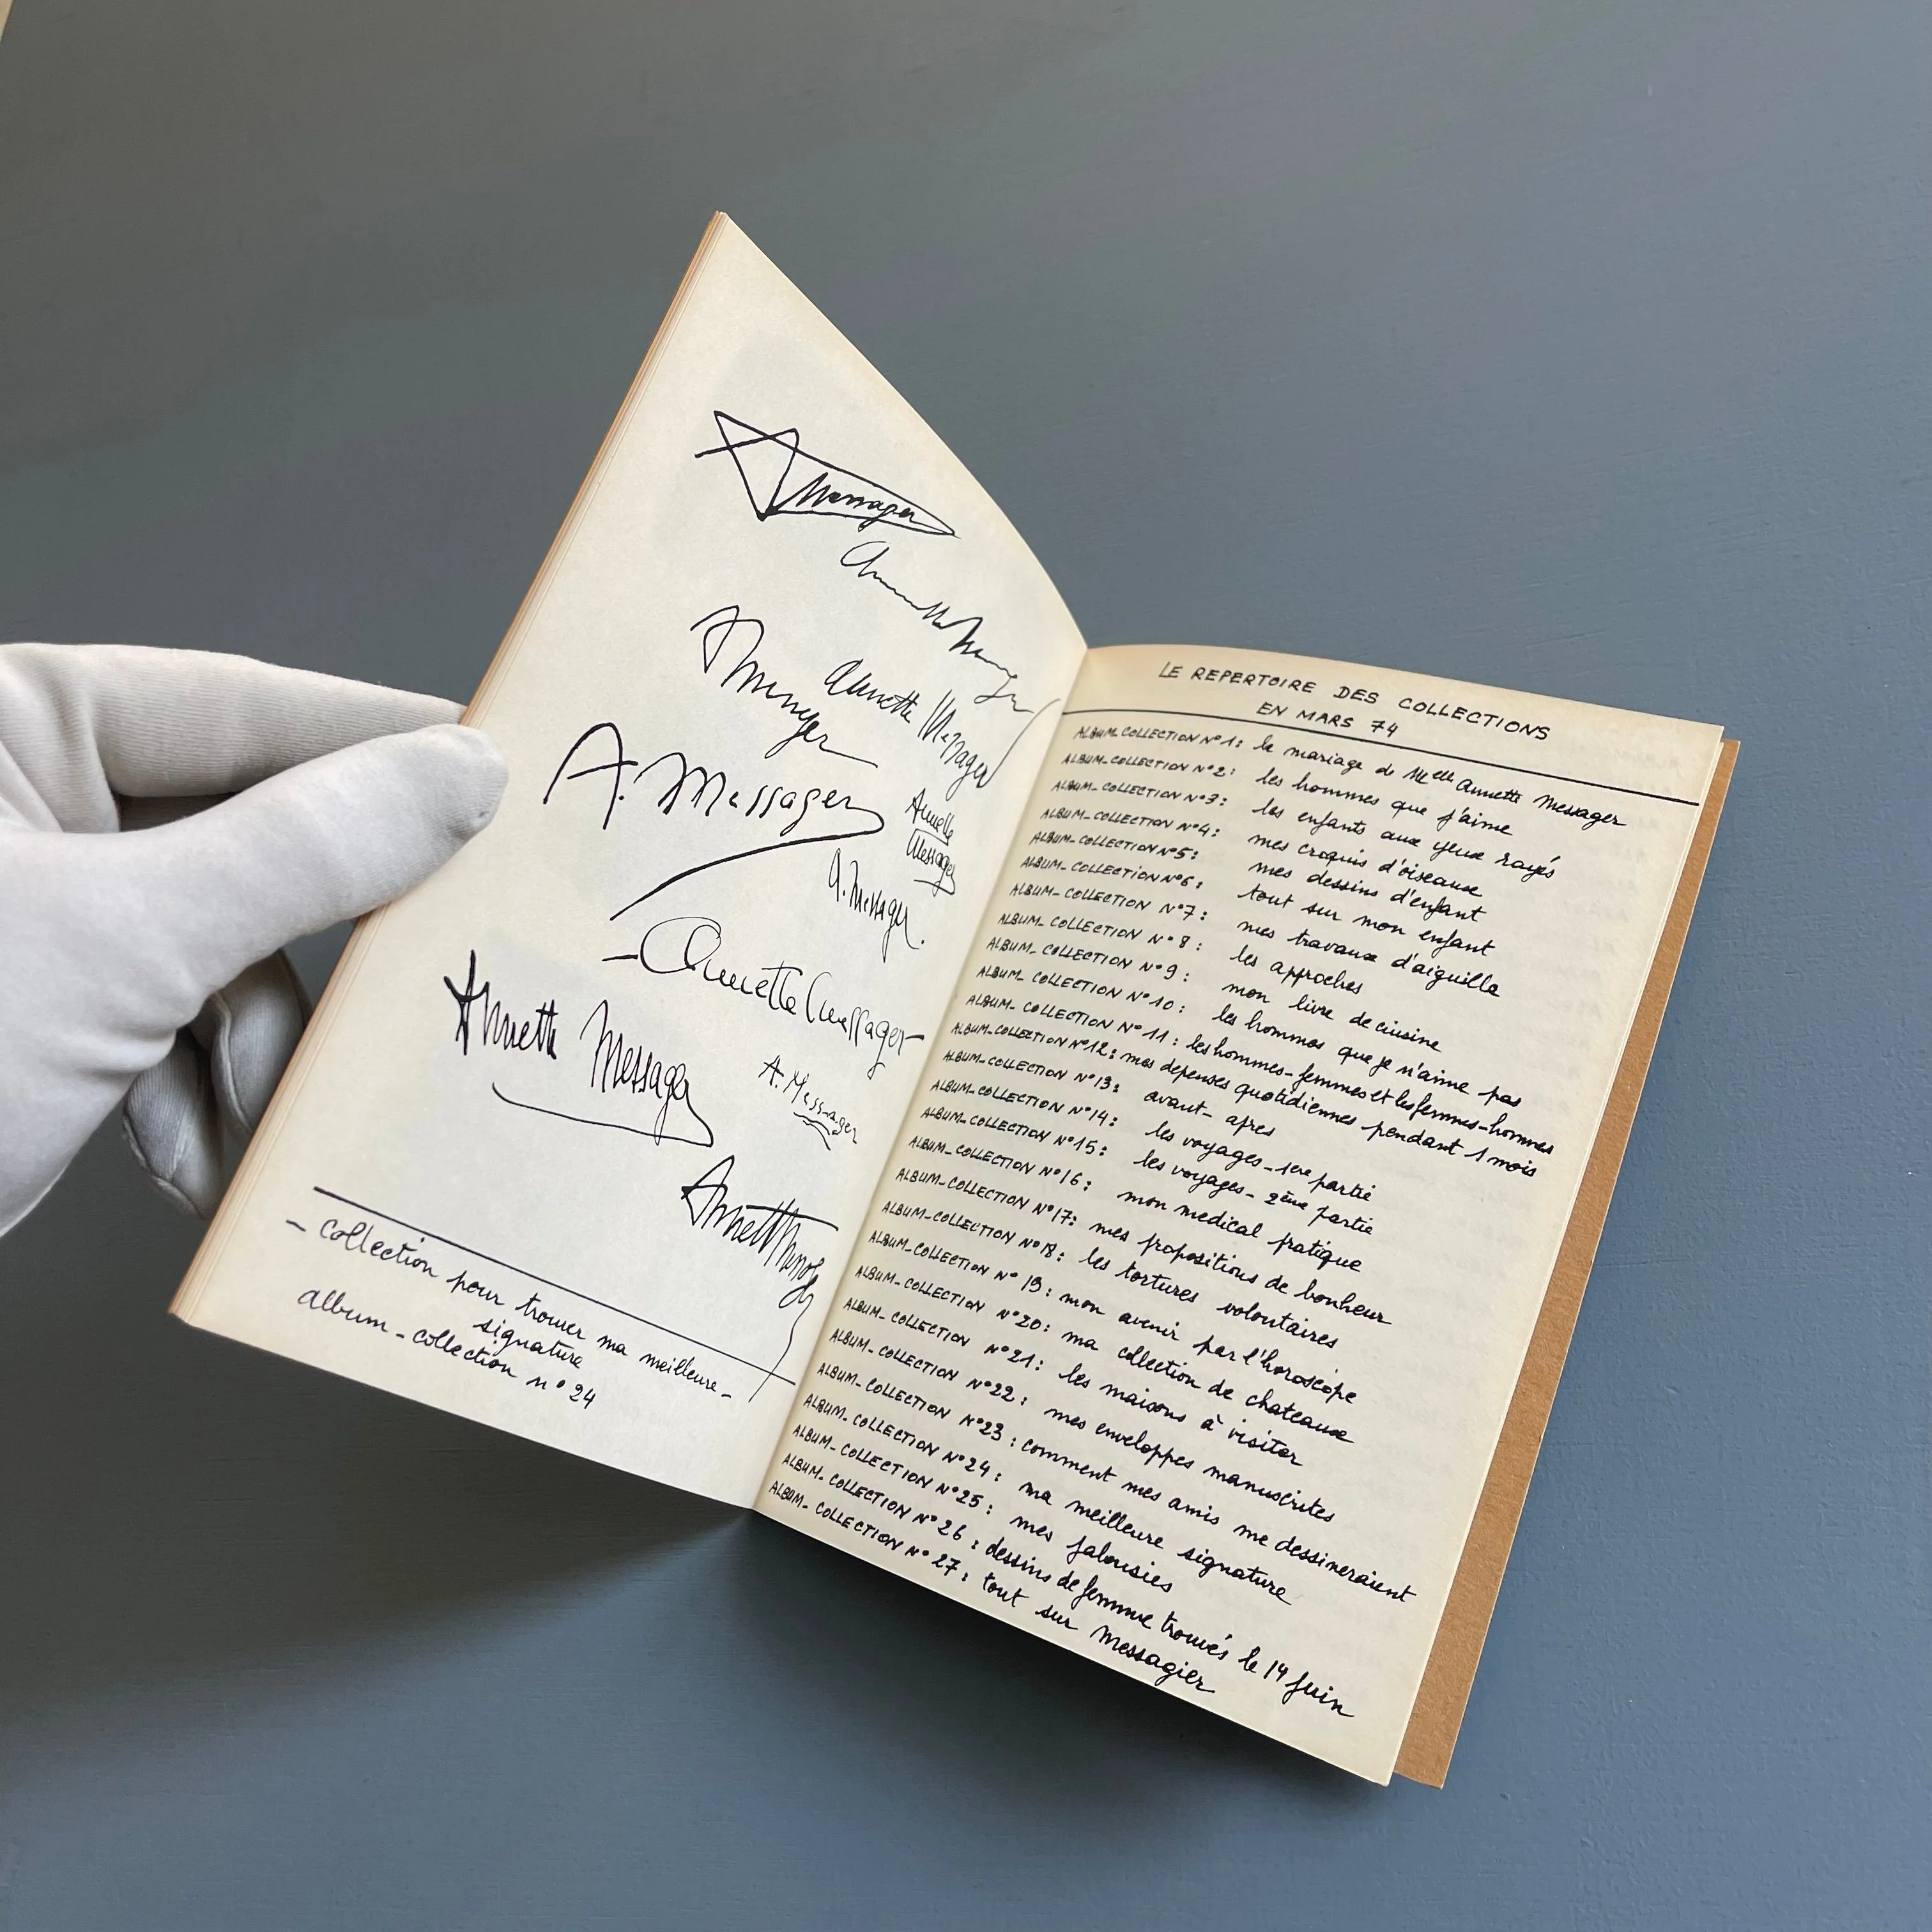 Messager
Annette Messager
A. Messager
Annette
Messager
A. Messager
Annette Messager
Annette Messager
A. Messager
- Collection pour trouver ma meilleure -
signature
album - collection n° 24
LE REPERTOIRE DES COLLECTIONS
EN MARS 74
ALBUM_COLLECTION N° 1: le mariage de Melle Annette Messager
ALBUM_COLLECTION N° 2: les hommes que j'aime
ALBUM_COLLECTION N° 3: les enfants aux yeux rayés
ALBUM_COLLECTION N° 4: mes croquis d'oiseaux
ALBUM_COLLECTION N° 5: mes dessins d'enfant
ALBUM_COLLECTION N° 6: tout sur mon enfant
ALBUM_COLLECTION N° 7: mes travaux d'aiguille
ALBUM_COLLECTION N° 8: les approches
ALBUM_COLLECTION N° 9: mon livre de cuisine
ALBUM_COLLECTION N° 10: les hommes que je n'aime pas
ALBUM_COLLECTION N° 11: les hommes-femmes et les femmes-hommes
ALBUM_COLLECTION N° 12: mes depenses quotidiennes pendant 1 mois
ALBUM_COLLECTION N° 13: avant-apres
ALBUM_COLLECTION N° 14: les voyages-1ere partie
ALBUM_COLLECTION N° 15: les voyages-2ème partie
ALBUM_COLLECTION N° 16: mon medical pratique
ALBUM_COLLECTION N° 17: mes propositions de bonheur
ALBUM_COLLECTION N° 18: les tortures volontaires
ALBUM_COLLECTION N° 19: mon avenir par l'horoscope
ALBUM_COLLECTION N° 20: ma collection de chateaux
ALBUM_COLLECTION N° 21: les maisons à visiter
ALBUM_COLLECTION N° 22: mes enveloppes manuscrites
ALBUM_COLLECTION N° 23: comment mes amis me dessineraient
ALBUM_COLLECTION N° 24: ma meilleure signature
ALBUM_COLLECTION N° 25: mes jalousies
ALBUM_COLLECTION N° 26: dessins de femme trouvés le 14 juin
ALBUM_COLLECTION N° 27: tout sur Messagier